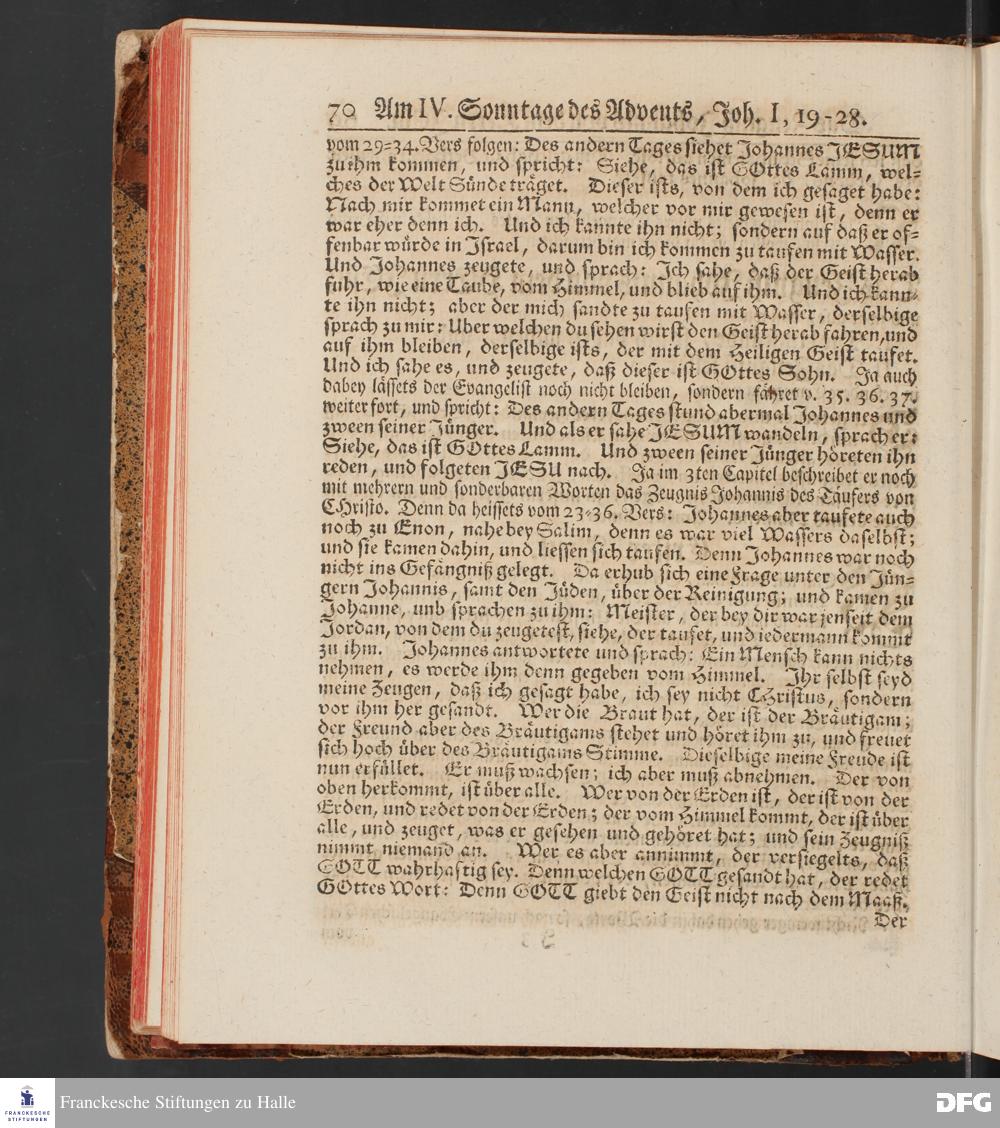 70 Am IV. Sonntage des Advents, Joh. I, 19-28.
vom 29=34. Vers folgen: Des andern Tages siehet Johannes JESUM
zu ihm kommen, und spricht: Siehe, das ist GOttes Lamm, wel=
ches der Welt Sünde träget. Dieser ists, von dem ich gesaget habe:
Nach mir kommet ein Mann, welcher vor mir gewesen ist, denn er
war eher denn ich. Und ich kannte ihn nicht; sondern auf daß er of=
fenbar würde in Israel, darum bin ich kommen zu taufen mit Wasser.
Und Johannes zeugete, und sprach: Ich sahe, daß der Geist herab
fuhr, wie eine Taube, vom Himmel, und blieb auf ihm. Und ich kann=
te ihn nicht; aber der mich sandte zu taufen mit Wasser, derselbige
sprach zu mir: Uber welchen du sehen wirst den Geist herab fahren, und
auf ihm bleiben, derselbige ists, der mit dem Heiligen Geist taufet.
Und ich sahe es, und zeugete, daß dieser ist GOttes Sohn. Ja auch
dabey lässets der Evangelist noch nicht bleiben, sondern fähret v. 35. 36. 37.
weiter fort, und spricht: Des andern Tages stund abermal Johannes und
zween seiner Jünger. Und als er sahe JESUM wandeln, sprach er:
Siehe, das ist GOttes Lamm. Und zween seiner Jünger höreten ihn
reden, und folgeten JESU nach. Ja im 3ten Capitel beschreibet er noch
mit mehrern und sonderbaren Worten das Zeugnis Johannis des Täufers von
CHristo. Denn da heissets vom 23=36. Vers: Johannes aber taufete auch
noch zu Enon, nahe bey Salim, denn es war viel Wassers daselbst;
und sie kamen dahin, und liessen sich taufen. Denn Johannes war noch
nicht ins Gefängniß gelegt. Da erhub sich eine Frage unter den Jün=
gern Johannis, samt den Jüden, über der Reinigung; und kamen zu
Johanne, unb sprachen zu ihm: Meister, der bey dir war jenseit dem
Jordan, von dem du zeugetest, siehe, der taufet, und iedermann kommt
zu ihm. Johannes antwortete und sprach: Ein Mensch kann nichts
nehmen, es werde ihm denn gegeben vom Himmel. Ihr selbst seyd
meine Zeugen, daß ich gesagt habe, ich sey nicht CHristus, sondern
vor ihm her gesandt. Wer die Braut hat, der ist der Bräutigam;
der Freund aber des Bräutigams stehet und höret ihm zu, und freuet
sich hoch über des Bräutigams Stimme. Dieselbige meine Freude ist
nun erfüllet. Er muß wachsen; ich aber muß abnehmen. Der von
oben herkommt, ist über alle. Wer von der Erden ist, der ist von der
Erden, und redet von der Erden; der vom Himmel kommt, der ist über
alle, und zeuget, was er gesehen und gehöret hat; und sein Zeugniß
nimmt niemand an. Wer es aber annimmt, der versiegelts, daß
GOTT wahrhaftig sey. Denn welchen GOTT gesandt hat, der redet
GOttes Wort: Denn GOTT giebt den Geist nicht nach dem Maaß.
Der
FRANCKESCHE
STIFTUNGEN
Franckesche Stiftungen zu Halle
DFG